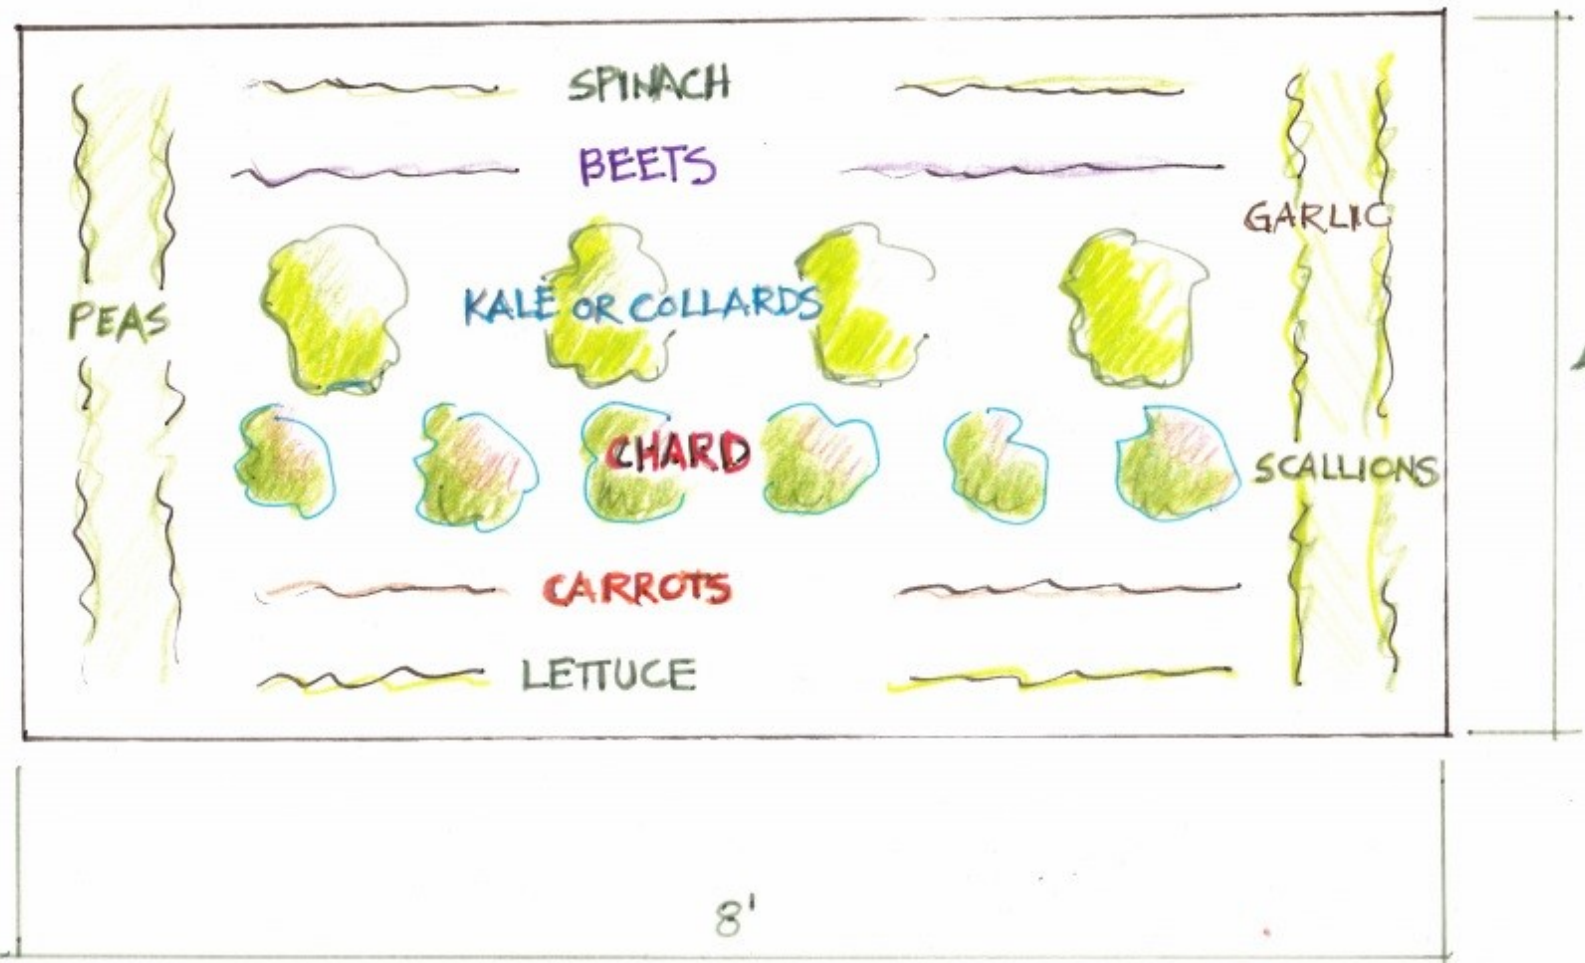 SPINACH
BEETS
GARLIC
KALE OR COLLARDS
PEAS
CHARD
SCALLIONS
CARROTS
LETTUCE
8'